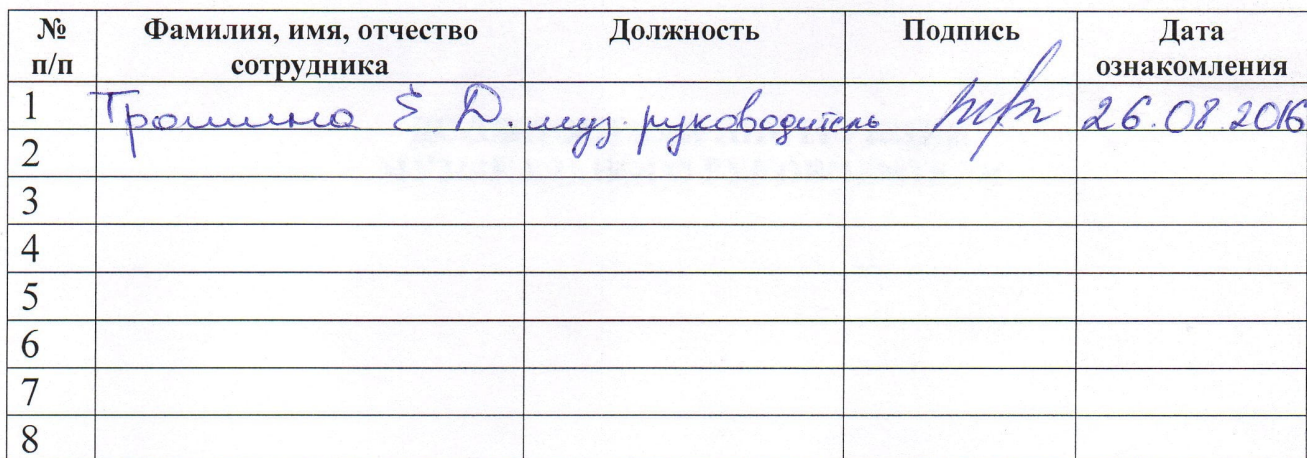 № п/п Фамилия, имя, отчество сотрудника Должность Подпись Дата ознакомления
1 Трошина Е. Д. муз. руководитель 26.08.2016
2
3
4
5
6
7
8